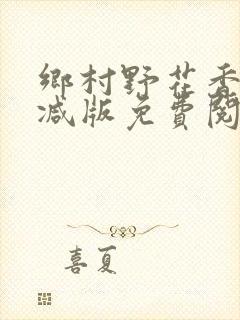 鄉村野花香
减版免費閱
喜夏